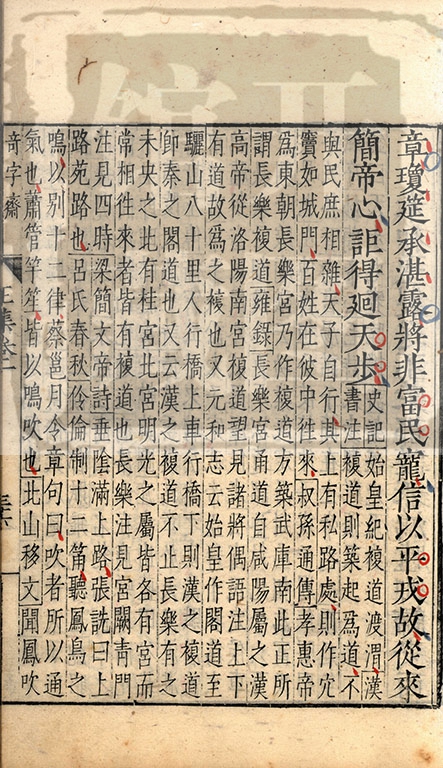 章瓊筵承湛露將非富民寵信以平戎故從來
簡帝心詎得廻天步
史記始皇紀複道渡渭漢
書注複道則築起爲道不
與民庶相雜天子自行其上有私路處則作穴
竇如城門百姓在彼中往來叔孫通傳孝惠帝
爲東朝長樂宮乃作複道方築武庫南此正所
謂長樂複道雍錄長樂宮甬道自咸陽屬之漢
高帝從洛陽南宮複道望見諸將偶語注上下
有道故爲之複也又元和志云始皇作閣道至
驪山八十里人行橋上車行橋下則漢之複道
卽秦之閣道也又云漢之複道不止長樂有之
未央之北有桂宮北宮明光之屬皆各有宮而
常相徃來者皆有複道也長樂注見宮闕青門
注見四時梁簡文帝詩垂陰滿上路張詵曰上
路苑路也呂氏春秋伶倫制十二筩聽鳳鳥之
鳴以别十二律蔡邕月令章句曰吹者所以通
氣也蕭管竽笙皆以鳴吹也北山移文聞鳳吹
奇字齋